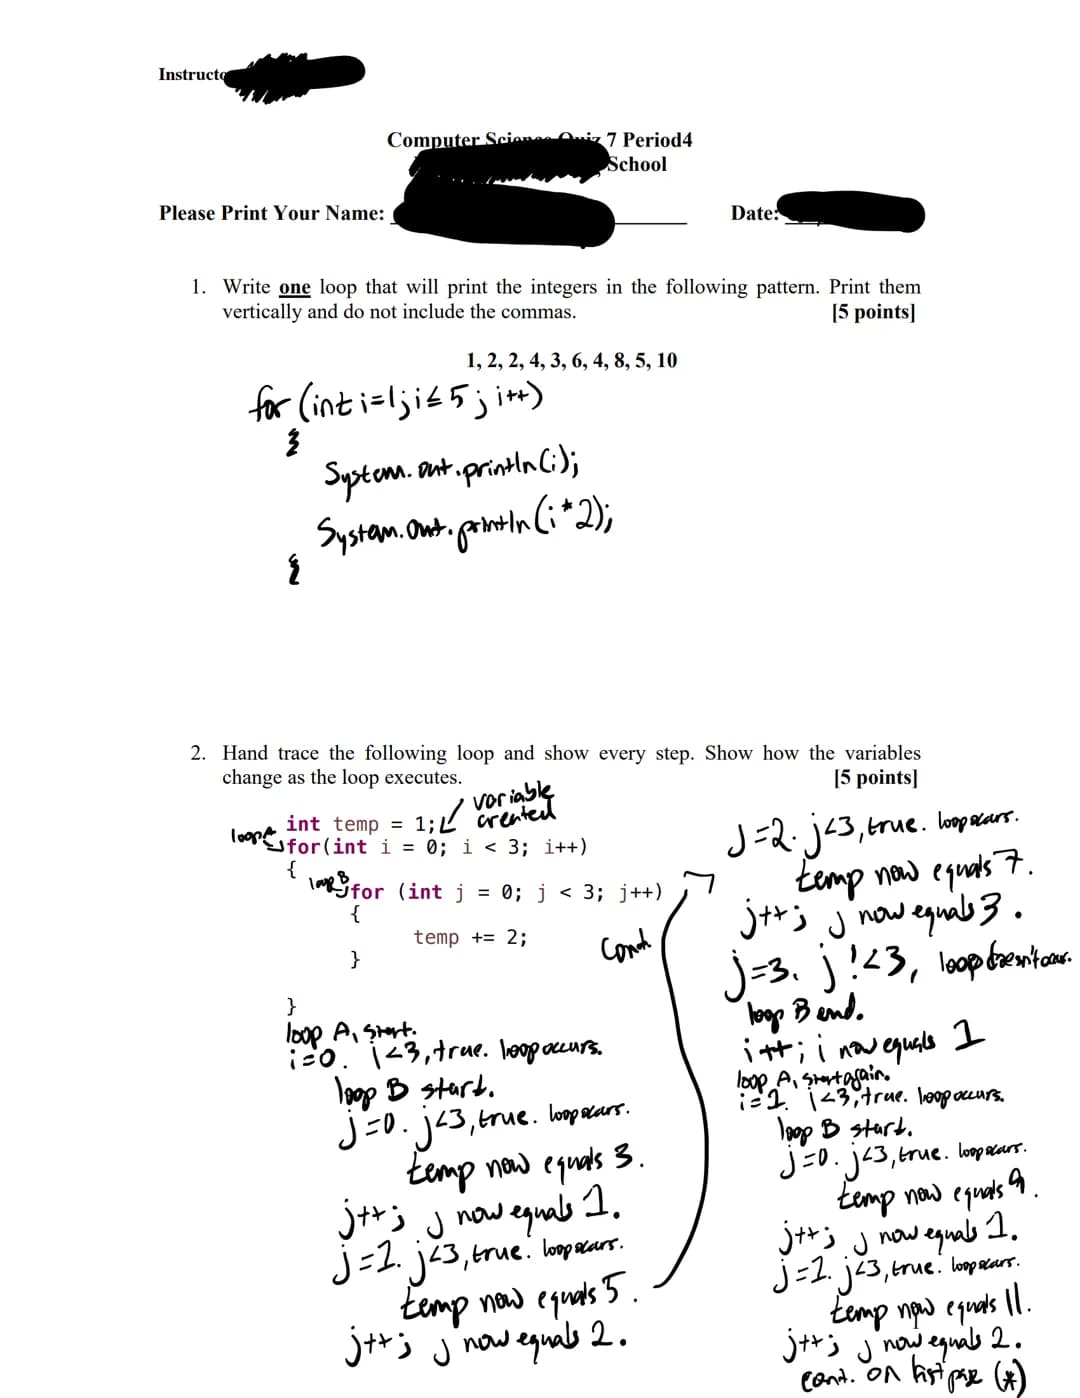 Instructo
Computer Science Quiz 7 Period4
School
Please Print Your Name:
Date:
1. Write one loop that will print the integers in the following pattern. Print them
vertically and do not include the commas. [5 points]
1, 2, 2, 4, 3, 6, 4, 8, 5, 10
for (int i=1; i≤5; i++)
{
System.out.println(i);
System.out.println(i*2);
}
2. Hand trace the following loop and show every step. Show how the variables
change as the loop executes. [5 points]
variable
created
int temp = 1;
loop A
for(int i = 0; i < 3; i++)
{
loop B
for (int j = 0; j < 3; j++)
{
temp += 2;
}
}
loop A, start.
i=0. i<3, true. loop occurs.
loop B start.
j=0. j<3, true. loop occurs.
temp now equals 3.
j++; j now equals 1.
j=1. j<3, true. loop occurs.
temp now equals 5.
j++; j now equals 2.
Cont
J=2. j<3, true. loop occurs.
temp now equals 7.
j++; j now equals 3.
j=3. j!<3, loop doesn't occur.
loop B end.
i++; i now equals 1
loop A, start again.
i=1. i<3, true. loop occurs.
loop B start.
j=0. j<3, true. loop occurs.
temp now equals 9.
j++; j now equals 1.
j=1. j<3, true. loop occurs.
temp now equals 11.
j++; j now equals 2.
cont. on last page (*)